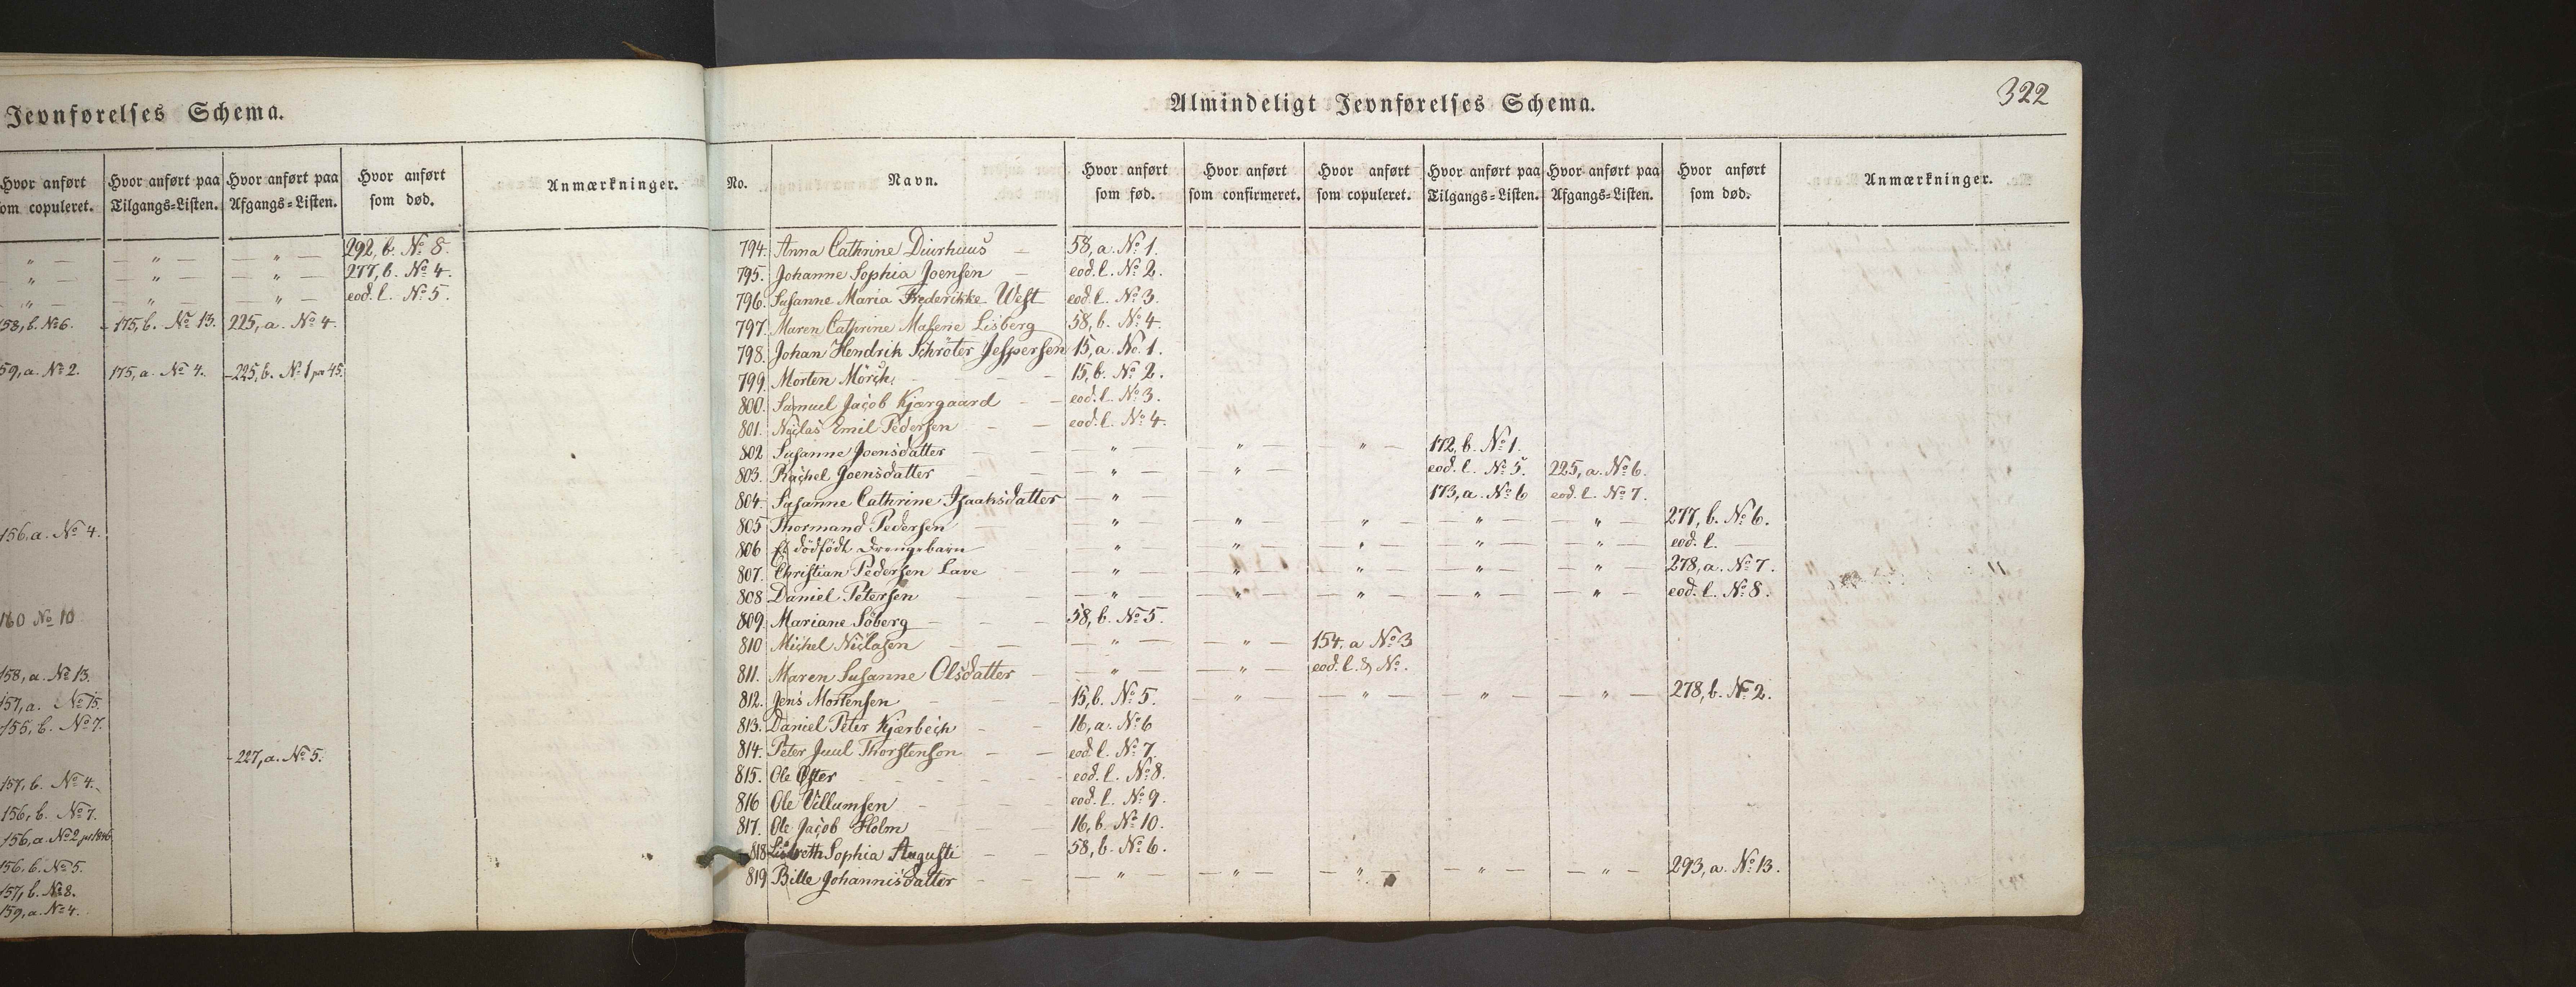 Jevnførelses Schema.
Hvor anført som copuleret. Hvor anført paa Tilgangs=Listen. Hvor anført paa Afgangs=Listen. Hvor anført som død. Anmærkninger.
" — — " — — " — 292, b. No 8.
" — — " — — " — 277, b. No 4.
" — — " — — " — eod. l. No 5.
158, b. No 6. 175, b. No 13. 225, a. No 4.
59, a. No 2. 175, a. No 4. 225, b. No 1 pr 45.
156. a. No 4.
160 No 10
158, a. No 13.
157, a. No 15.
155, b. No 7.
227, a. No 5.
157, b. No 4.
156, b. No 7.
156, a. No 2 pr 1846
156. b. No 5.
157, b. No 8.
159, a. No 4.
322
Almindeligt Jevnførelses Schema.
No. Navn. Hvor anført som fød. Hvor anført som confirmeret. Hvor anført som copuleret. Hvor anført paa Tilgangs=Listen. Hvor anført paa Afgangs=Listen. Hvor anført som død. Anmærkninger.
794. Anna Cathrine Diurhuus — 58, a. No 1.
795. Johanne Sophia Joensen — eod. l. No 2.
796. Susanne Maria Frederikke West eod. l. No 3.
797. Maren Cathrine Malene Lisberg 58, b. No 4.
798. Johan Hendrik Schröter Jespersen 15, a. No. 1.
799. Morten Mörch. — 15, b. No 2.
800. Samuel Jacob Kjærgaard — eod. l. No 3.
801. Niclas Emil Pedersen — eod. l. No 4.
802 Susanne Joensdatter — " — — " — — " — 172, b. No 1.
803. Rachel Joensdatter — " — — " — eod. l. No 5. 225, a. No 6.
804. Susanne Cathrine Isaaksdatter — " — 173, a. No 6 eod. l. No 7.
805 Thormand Pedersen — " — — " — — " — — " — — " — 277, b. No 6.
806 Et dödfödt Drengebarn — " — — " — — " — — " — — " — eod. l. —
807. Christian Pedersen Lave — " — — " — — " — — " — — " — 278, a. No 7.
808. Daniel Petersen — " — — " — — " — — " — — " — eod. l. No 8.
809. Mariane Söberg — 58, b. No 5.
810 Michel Niclasen — " — — " — 154. a No 3
811. Maren Susanne Olsdatter — " — — " — eod. l. & No.
812. Jens Mortensen — 15, b. No 5. — " — — " — — " — — " — 278, b. No 2.
813. Daniel Peter Kjærbech — 16, a. No 6
814. Peter Juul Thorstenson — eod l. No 7.
815. Ole Öster — eod. l. No 8.
816 Ole Villumsen — eod. l. No 9.
817. Ole Jacob Holm — 16, b. No 10.
818 Lisbeth Sophia Augusti — 58, b. No 6.
819 Bille Johannisdatter — " — — " — — " — — " — — " — 293, a. No 13.